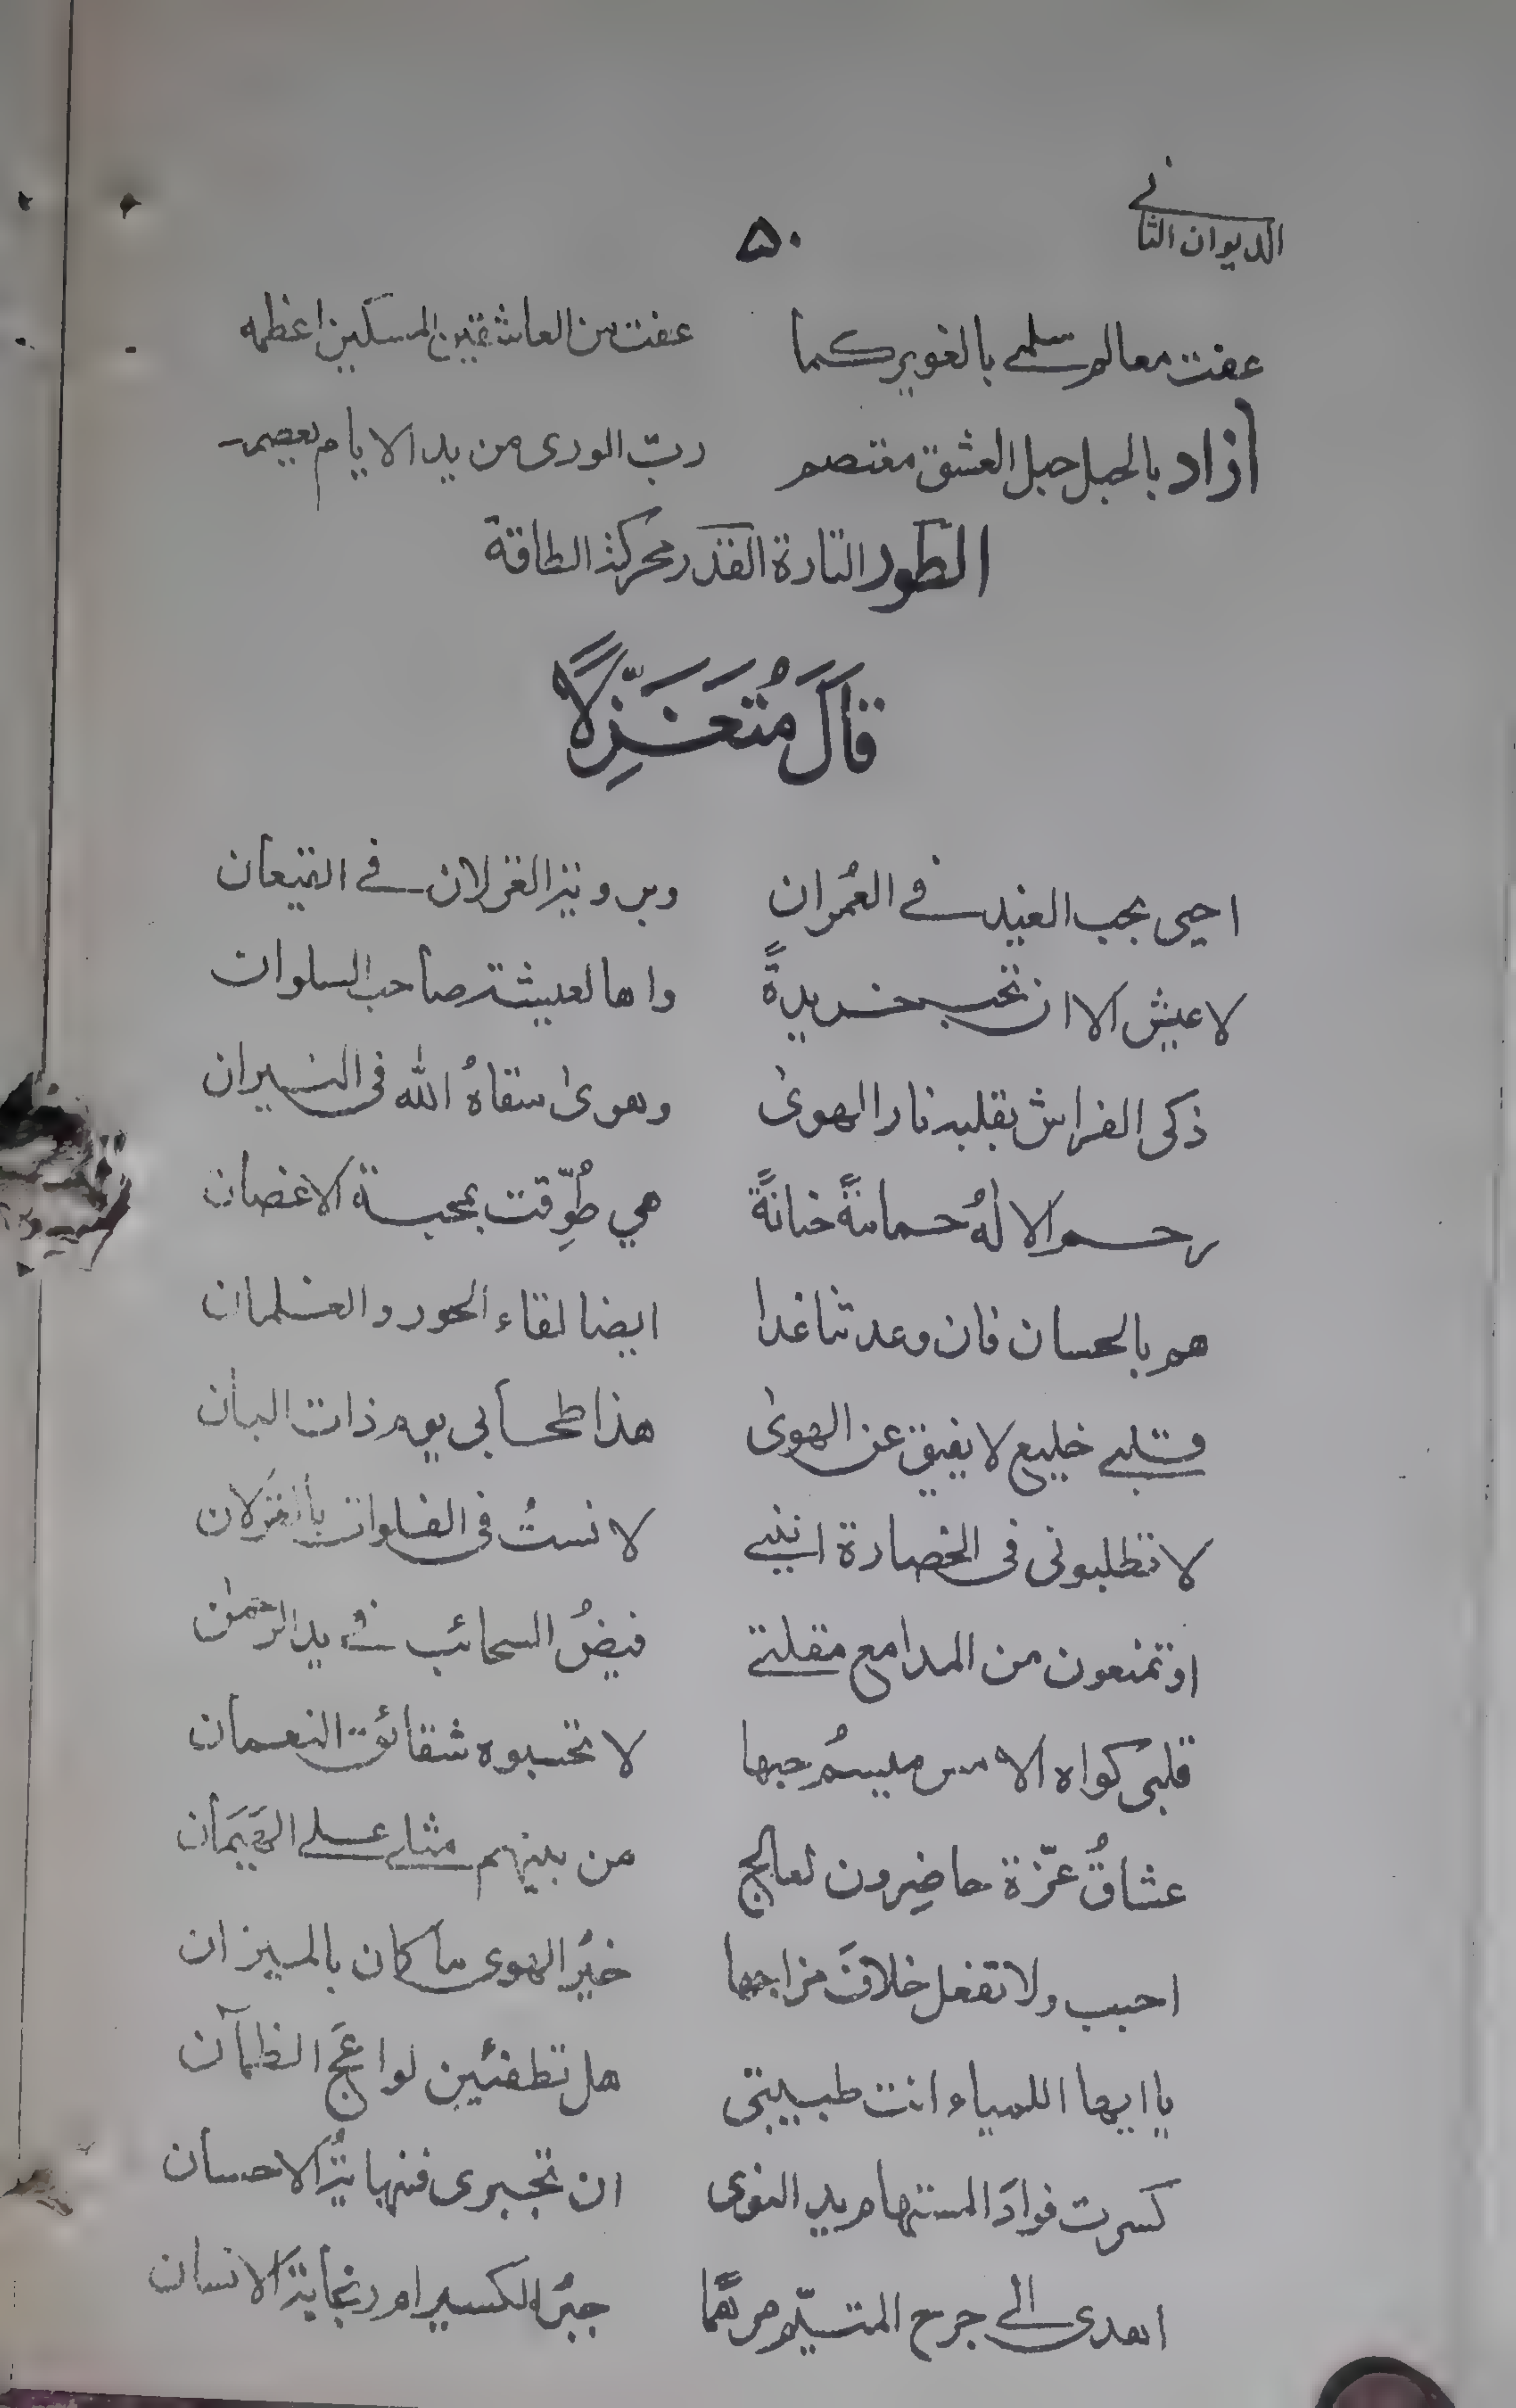 الديوان الثاني
۵۰
عفت معالم سلمى بالغوير كما عفت من العاشقين المسكين اعظمه
ازاد بالحبل حبل العشق معتصم ربّ الورى من يد الايام يعصمه
الطور التارة القدر محركة الطاقة
قَالَ مُتَغَزِّلًا
احيى بحب الغيد في العُمران وبرو الغزلان في القيعان
لا عيش الا ان تحب خريدةً واها لعيشة صاحب السلوان
ذكى الفراش بقلبه نار الهوىٰ وهوىٰ سقاهُ الله فى النيران
رحم الالهُ حمامةً حنانةً هي طُوِّقت بمحبة الاغصان
هم بالحسان فان وعدتنا غدا ايضا لقاء الحور والغلمان
قلبي خليع لا يفيق عن الهوىٰ هذا طحابي يوم ذات البان
لا تطلبونى فى الحضارة اننى لانستُ فى الفلوات بالغزلان
او تمنعون من المدامع مقلتي فيضُ السحائب في يد الرحمٰن
قلبى كواه الامس ميسمُ حبها لا تحسبوه شقائق النعمان
عشاقُ عزّة حاضِرون لعالج من بينهم مثلي على
احبب ولا تفعل خلافَ مزاجها خيرُ الهوى ما كان بالميزان
يا ايها اللمياء انت طبيبتى هل تطفئين لواعجَ الظمآن
كسرت فوادَ المستهام يد النوى ان تجبرى فنهايةُ الاحسان
اهدى الى جرح المتيّم مرهمًا جبرُ الكسير امور نجابة الانسان